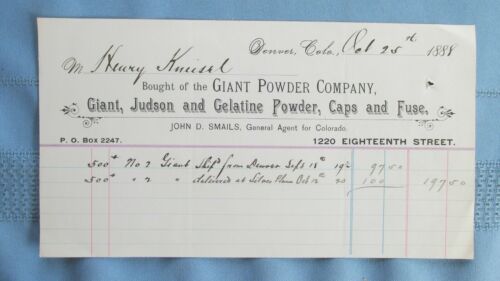 Denver, Colo, Oct 25th 1888
M Henry Kneisel
Bought of the GIANT POWDER COMPANY,
Giant, Judson and Gelatine Powder, Caps and Fuse.
JOHN D. SMAILS, General Agent for Colorado.
P. O. Box 2247. 1220 EIGHTEENTH STREET.
500# No 2 Giant Ship'd from Denver Sept 18th 19½ 97 50
500# " 2 " delivered at Silver Plume Oct 12th 20 100 197 50